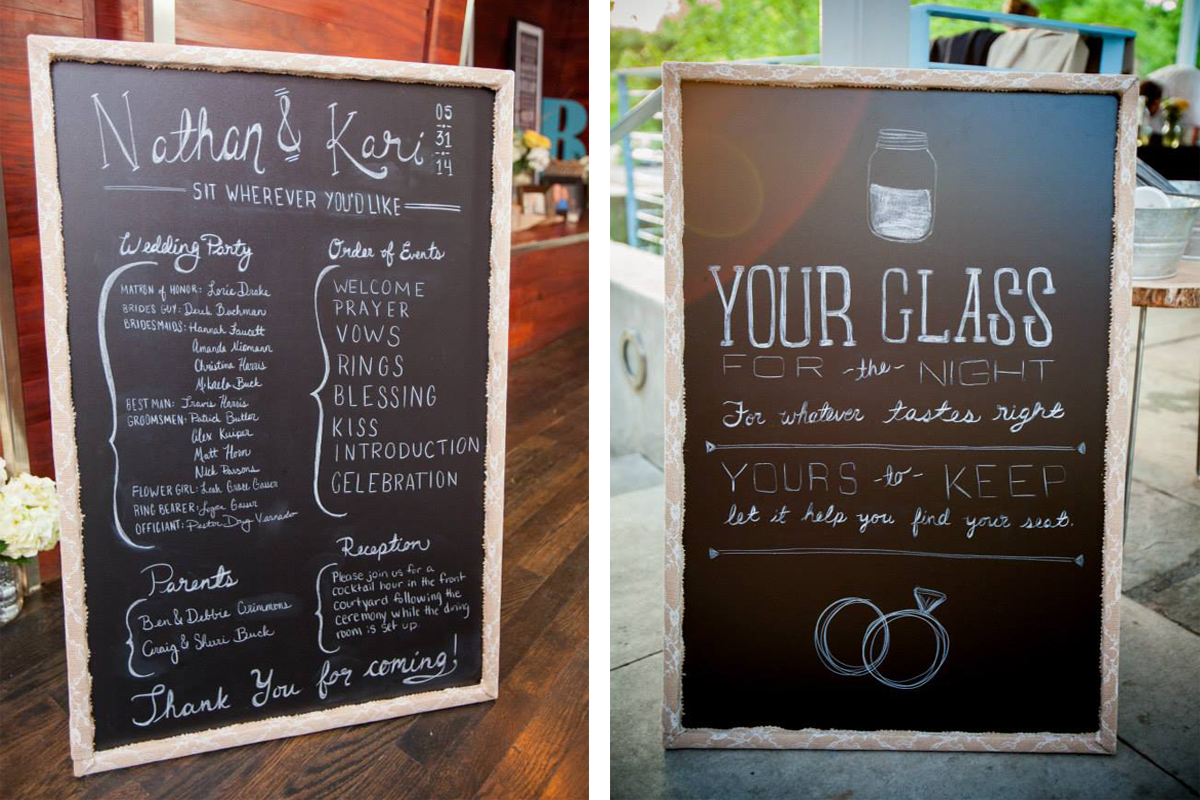 Nathan & Kari
05
31
14
SIT WHEREVER YOU'D LIKE
Wedding Party
MATRON of HONOR: Lorie Drake
BRIDES GUY: Derek Buchman
BRIDESMAIDS: Hannah Faucett
Amanda Niemann
Christina Harris
Mikaela Buck
BEST MAN: Travis Harris
GROOMSMEN: Patrick Butler
Alex Kuiper
Matt Horn
Nick Parsons
FLOWER GIRL: Leah Grace Gasser
RING BEARER: Logan Gasser
OFFICIANT: Pastor
Parents
Ben & Debbie Crimmons
Craig & Sherri Buck
Order of Events
WELCOME
PRAYER
VOWS
RINGS
BLESSING
KISS
INTRODUCTION
CELEBRATION
Reception
Please join us for a
cocktail hour in the front
courtyard following the
ceremony while the dining
room is set up.
Thank You for coming!
B
YOUR GLASS
FOR -the- NIGHT
For whatever tastes right
YOURS -to- KEEP
let it help you find your seat.